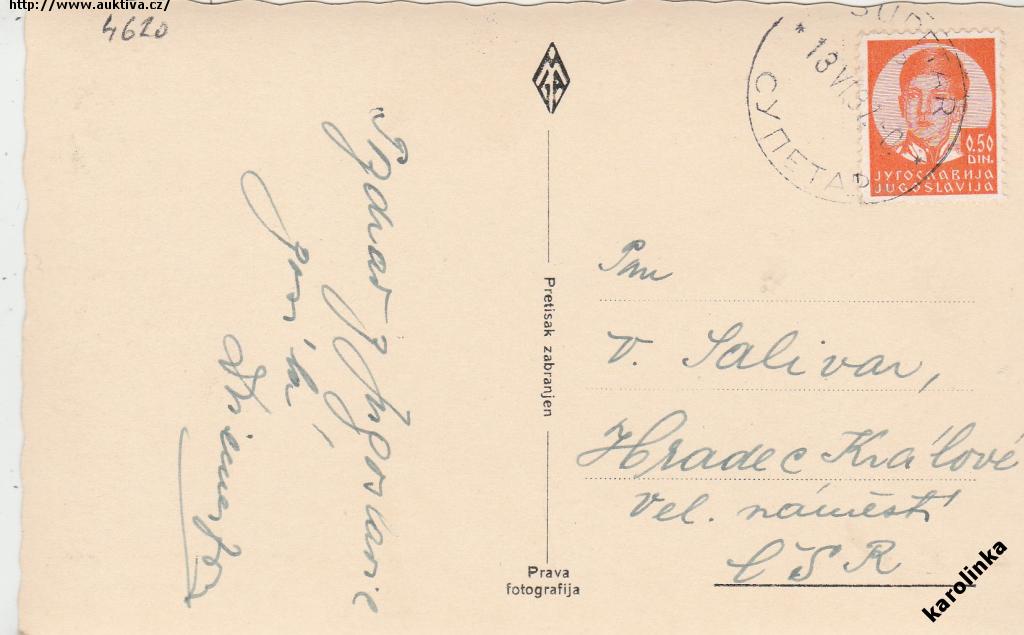 http://www.auktiva.cz/
4620
Pozdrav z Jugoslavie
posílá
SUPETAR
* 13 VI
СУПЕТАР *
0.50
DIN.
ЈУГОСЛАВИЈА
JUGOSLAVIJA
Pretisak zabranjen
Prava
fotografija
Pan
V. Salivar,
Hradec Králové
Vel. náměstí
ČSR
karolinka